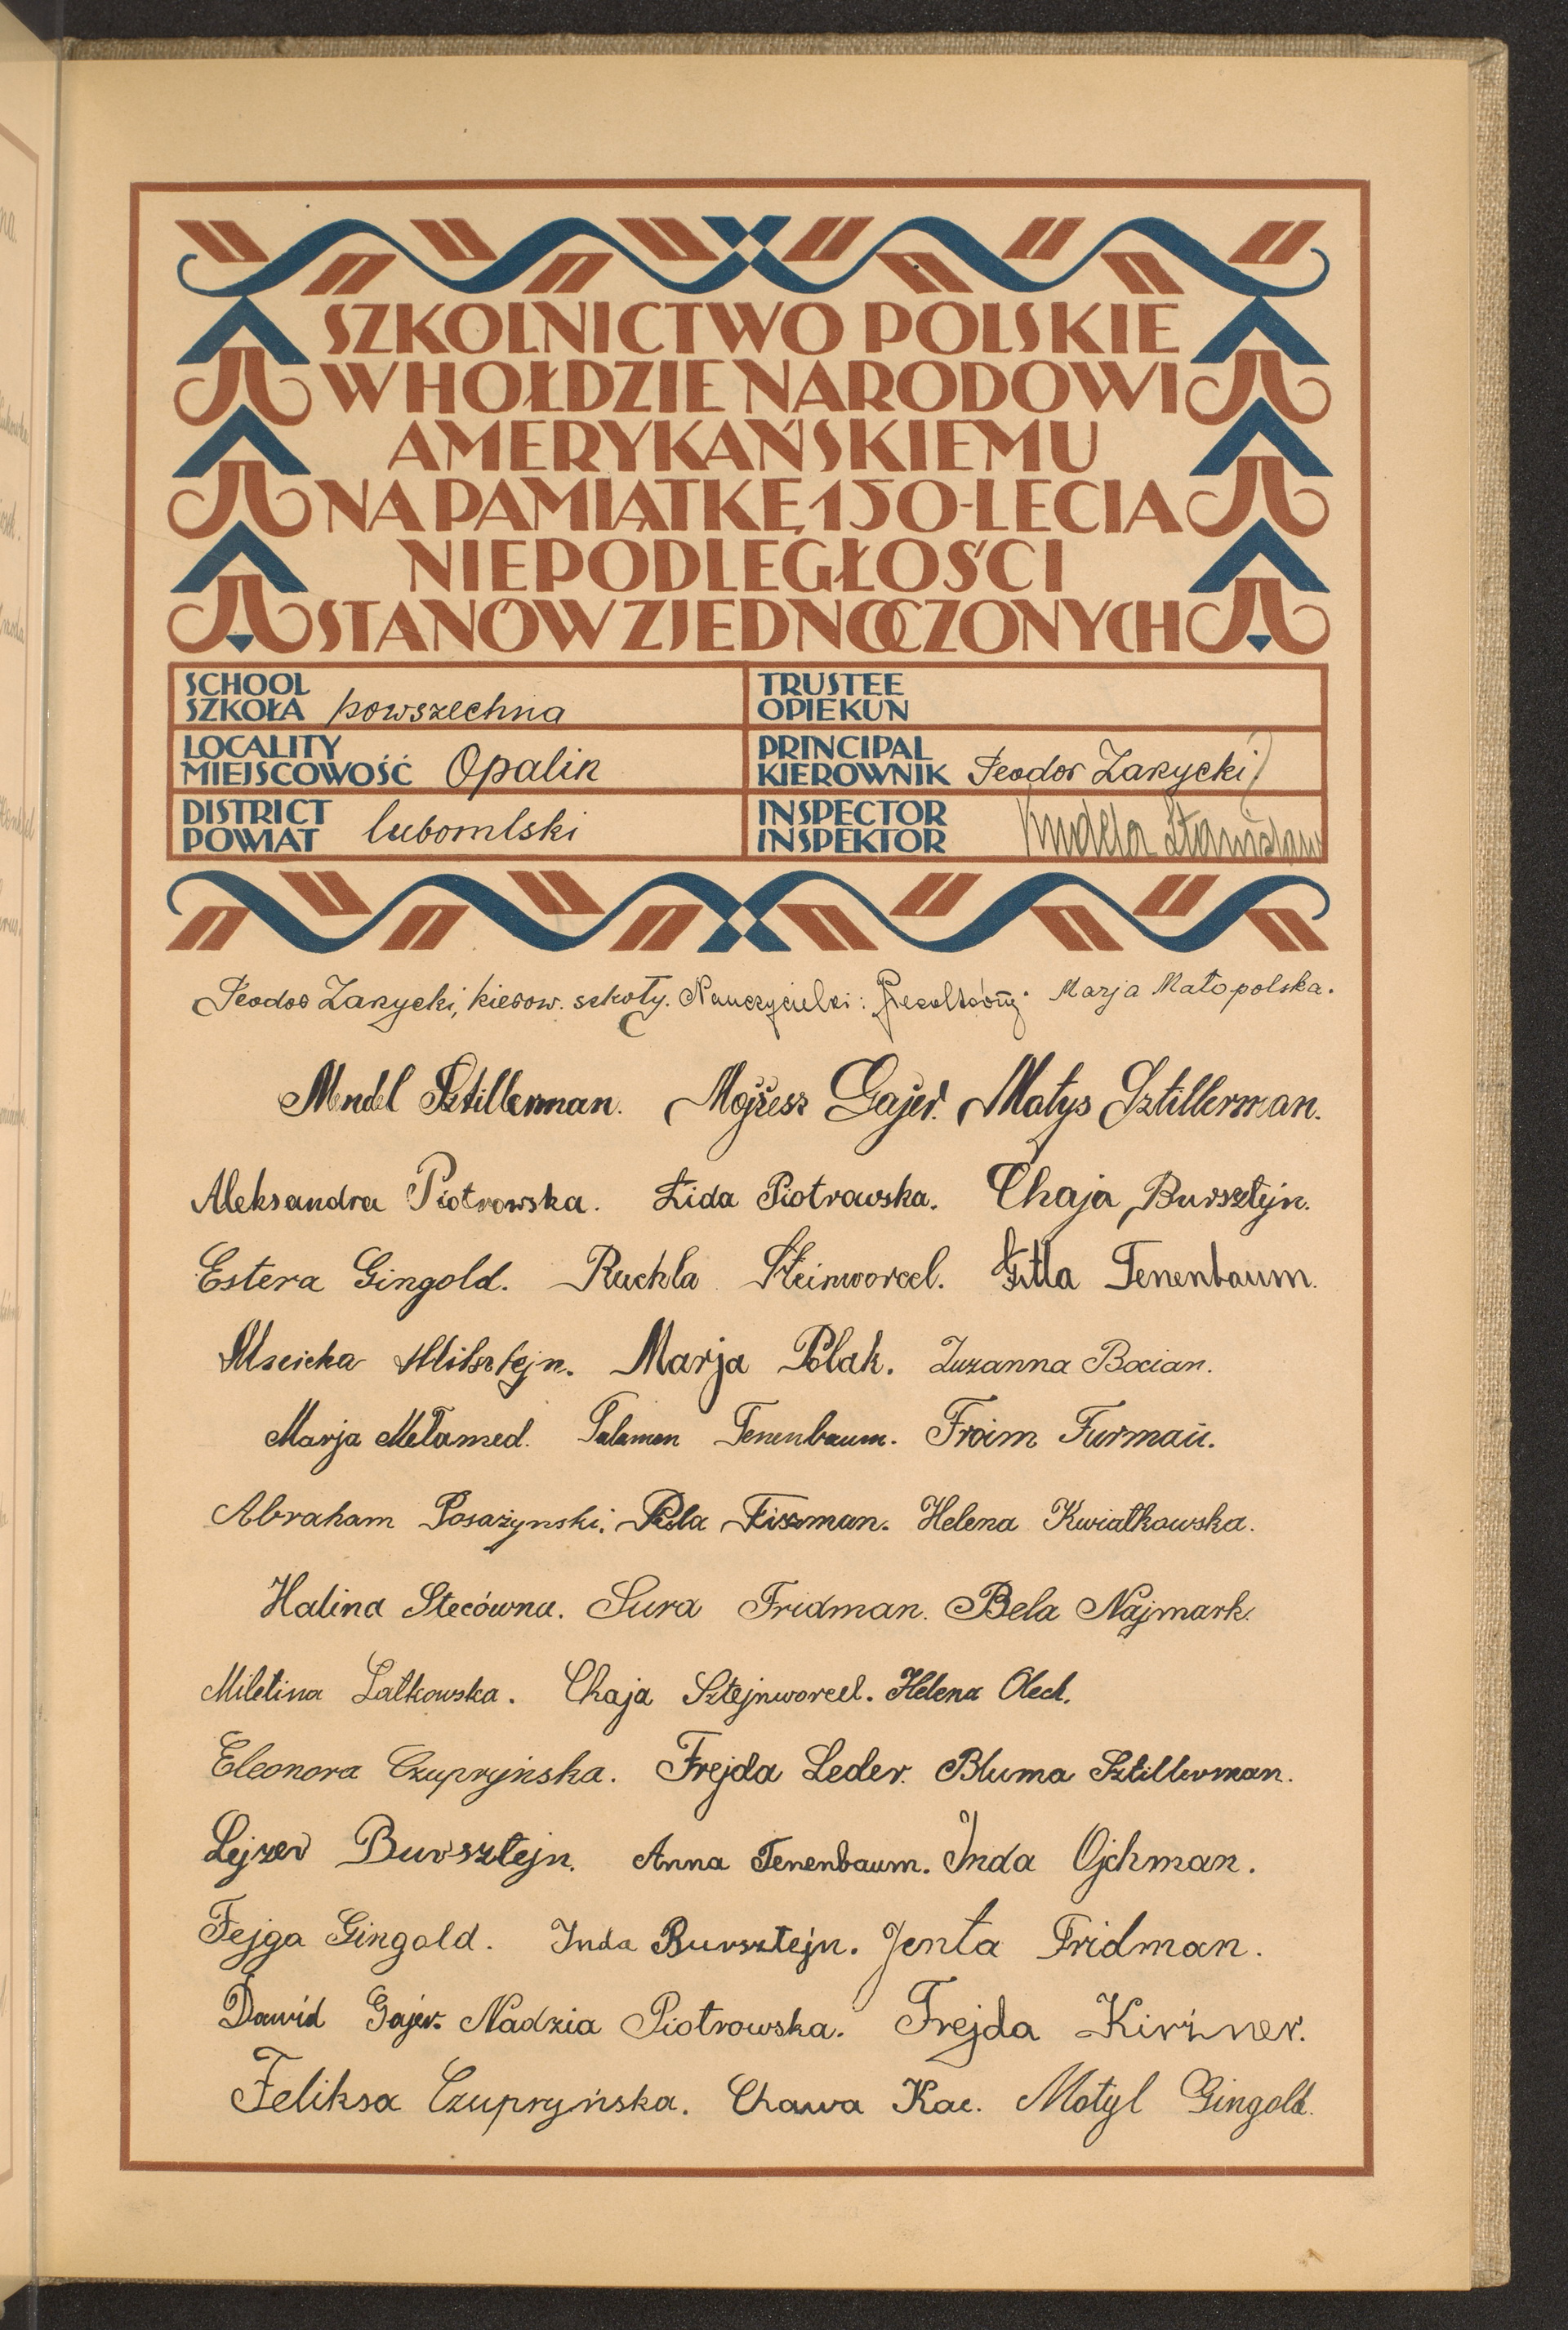 SZKOLNICTWO POLSKIE
W HOŁDZIE NARODOWI
AMERYKAŃSKIEMU
NA PAMIĄTKĘ 150-LECIA
NIEPODLEGŁOŚCI
STANÓW ZJEDNOCZONYCH
SCHOOL
SZKOŁA powszechna
TRUSTEE
OPIEKUN
LOCALITY
MIEJSCOWOŚĆ Opalin
PRINCIPAL
KIEROWNIK Teodor Zarycki
DISTRICT
POWIAT lubomlski
INSPECTOR
INSPEKTOR Stanisław
Teodor Zarycki, kierow. szkoły. Nauczycielki: Marja Małopolska.
Mendel Sztillerman. Mojżesz Gajer. Matys Sztillerman.
Aleksandra Piotrowska. Lida Piotrowska. Chaja Bursztejn.
Estera Gingold. Ruchla Szteinworcel. Gitla Tenenbaum.
Milsztejn. Marja Polak. Zuzanna Bocian.
Marja Mełamed. Salamon Tenenbaum. Froim Furman.
Abraham Posażynski. Perla Fiszman. Helena Kwiatkowska.
Halina Stecówna. Sura Fridman. Bela Najmark.
Miletina Latkowska. Chaja Sztejnworcel. Helena Olech.
Eleonora Czupryńska. Frejda Leder. Bluma Sztillerman.
Lejzer Bursztejn. Anna Tenenbaum. Inda Ojchman.
Fejga Gingold. Inda Bursztejn. Jenta Fridman.
Dawid Gajer. Nadzia Piotrowska. Frejda Kirżner.
Feliksa Czupryńska. Chawa Kac. Motyl Gingold.